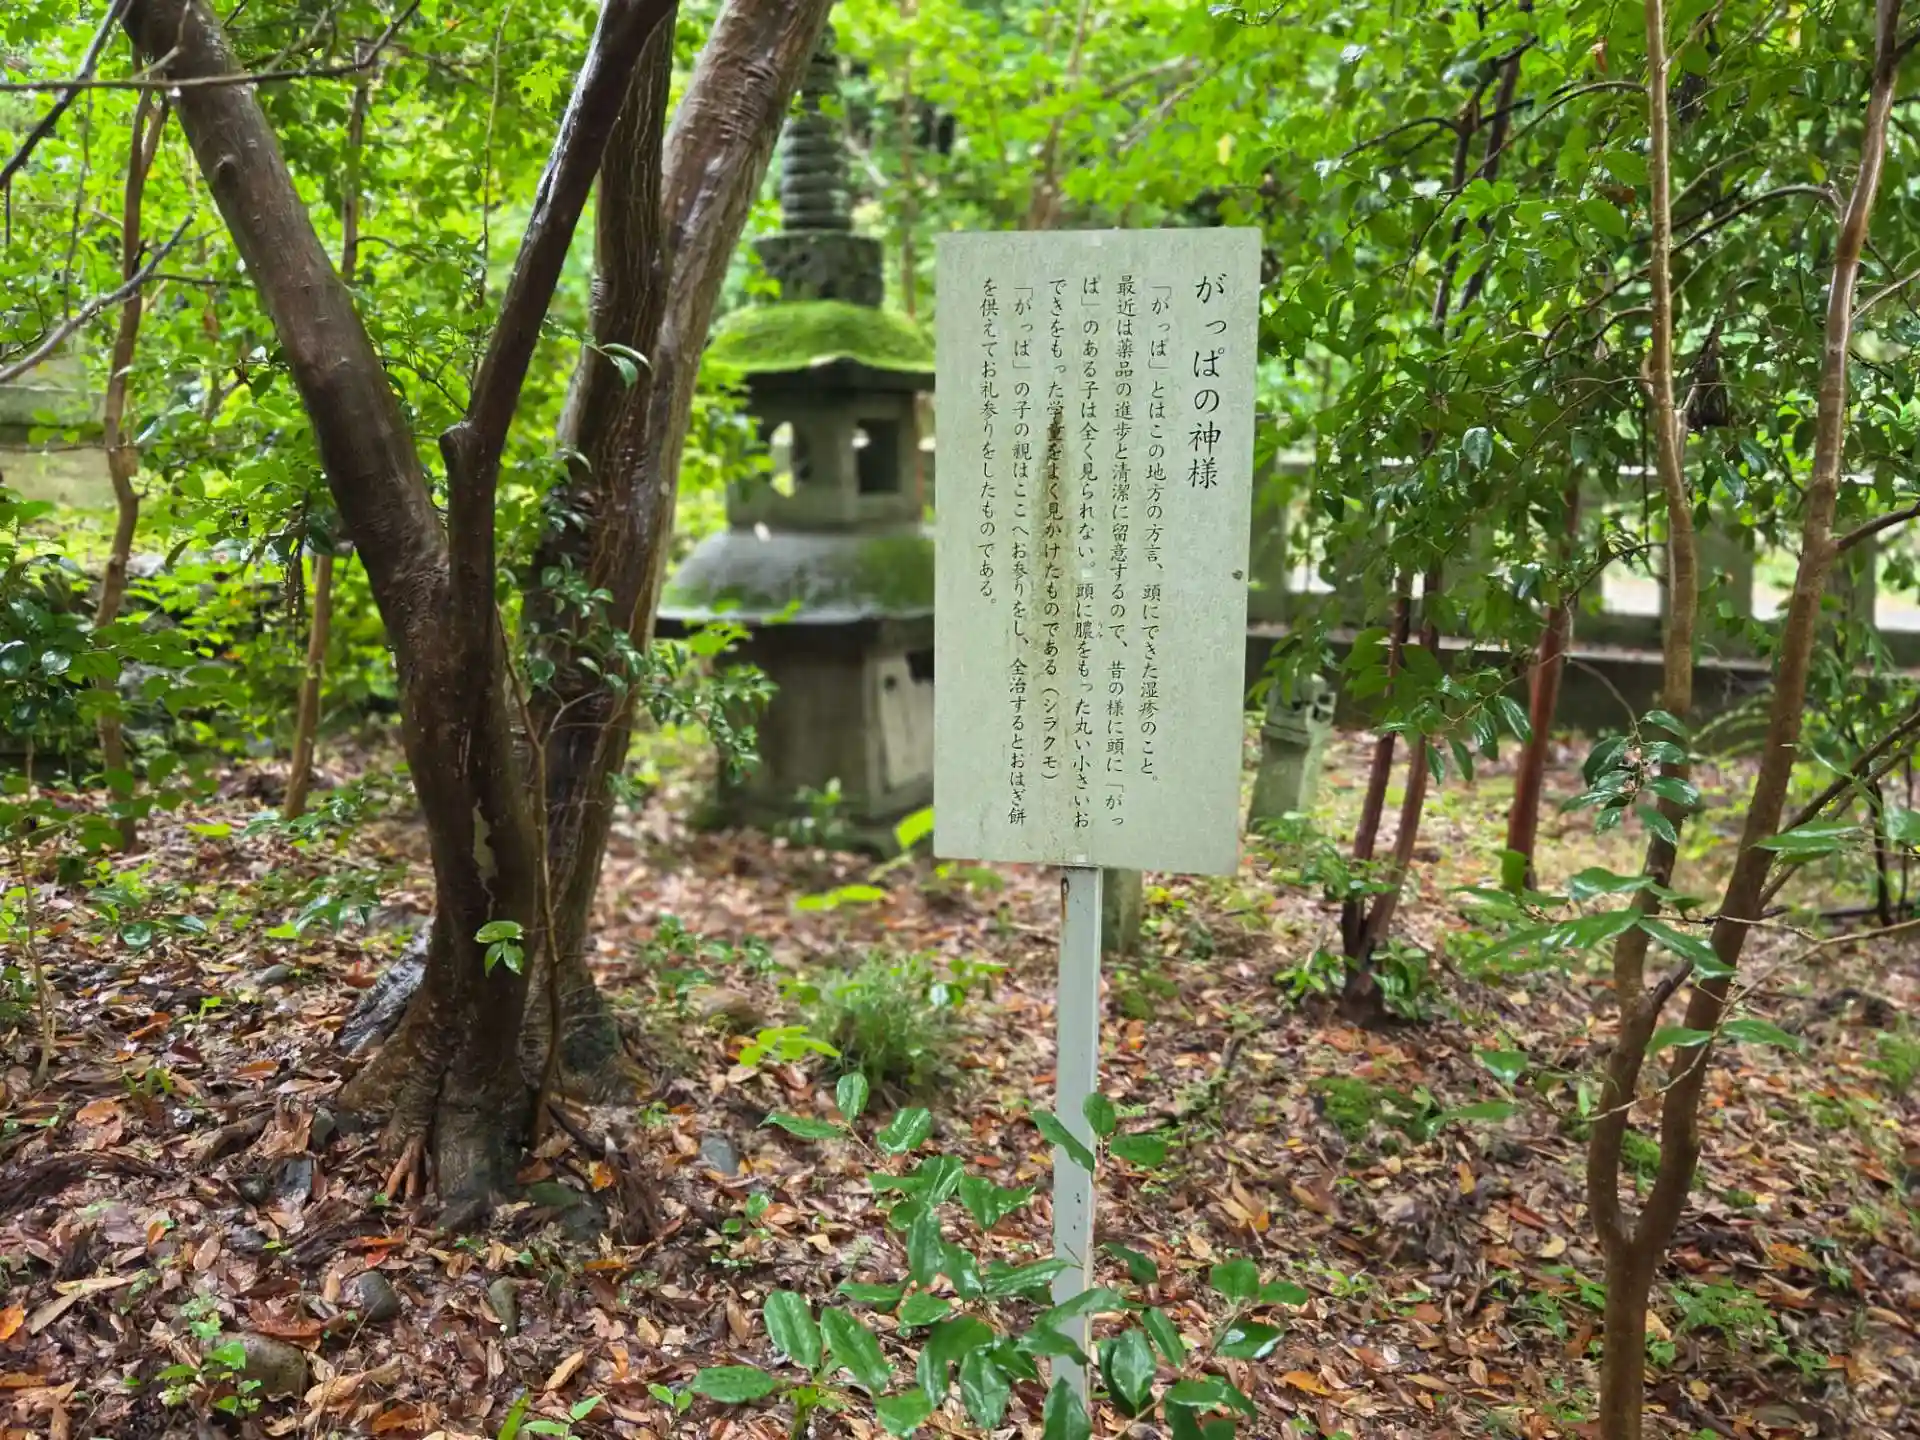 がっぱの神様
「がっぱ」とはこの地方の方言、頭にできた湿疹のこと。
最近は薬品の進歩と清潔に留意するので、昔の様に頭に「がっ
ぱ」のある子は全く見られない。頭に膿をもった丸い小さいお
うみ
できをもった学童をよく見かけたものである(シラクモ)
「がっぱ」の子の親はここへお参りをし、全治するとおはぎ餅
を供えてお礼参りをしたものである。